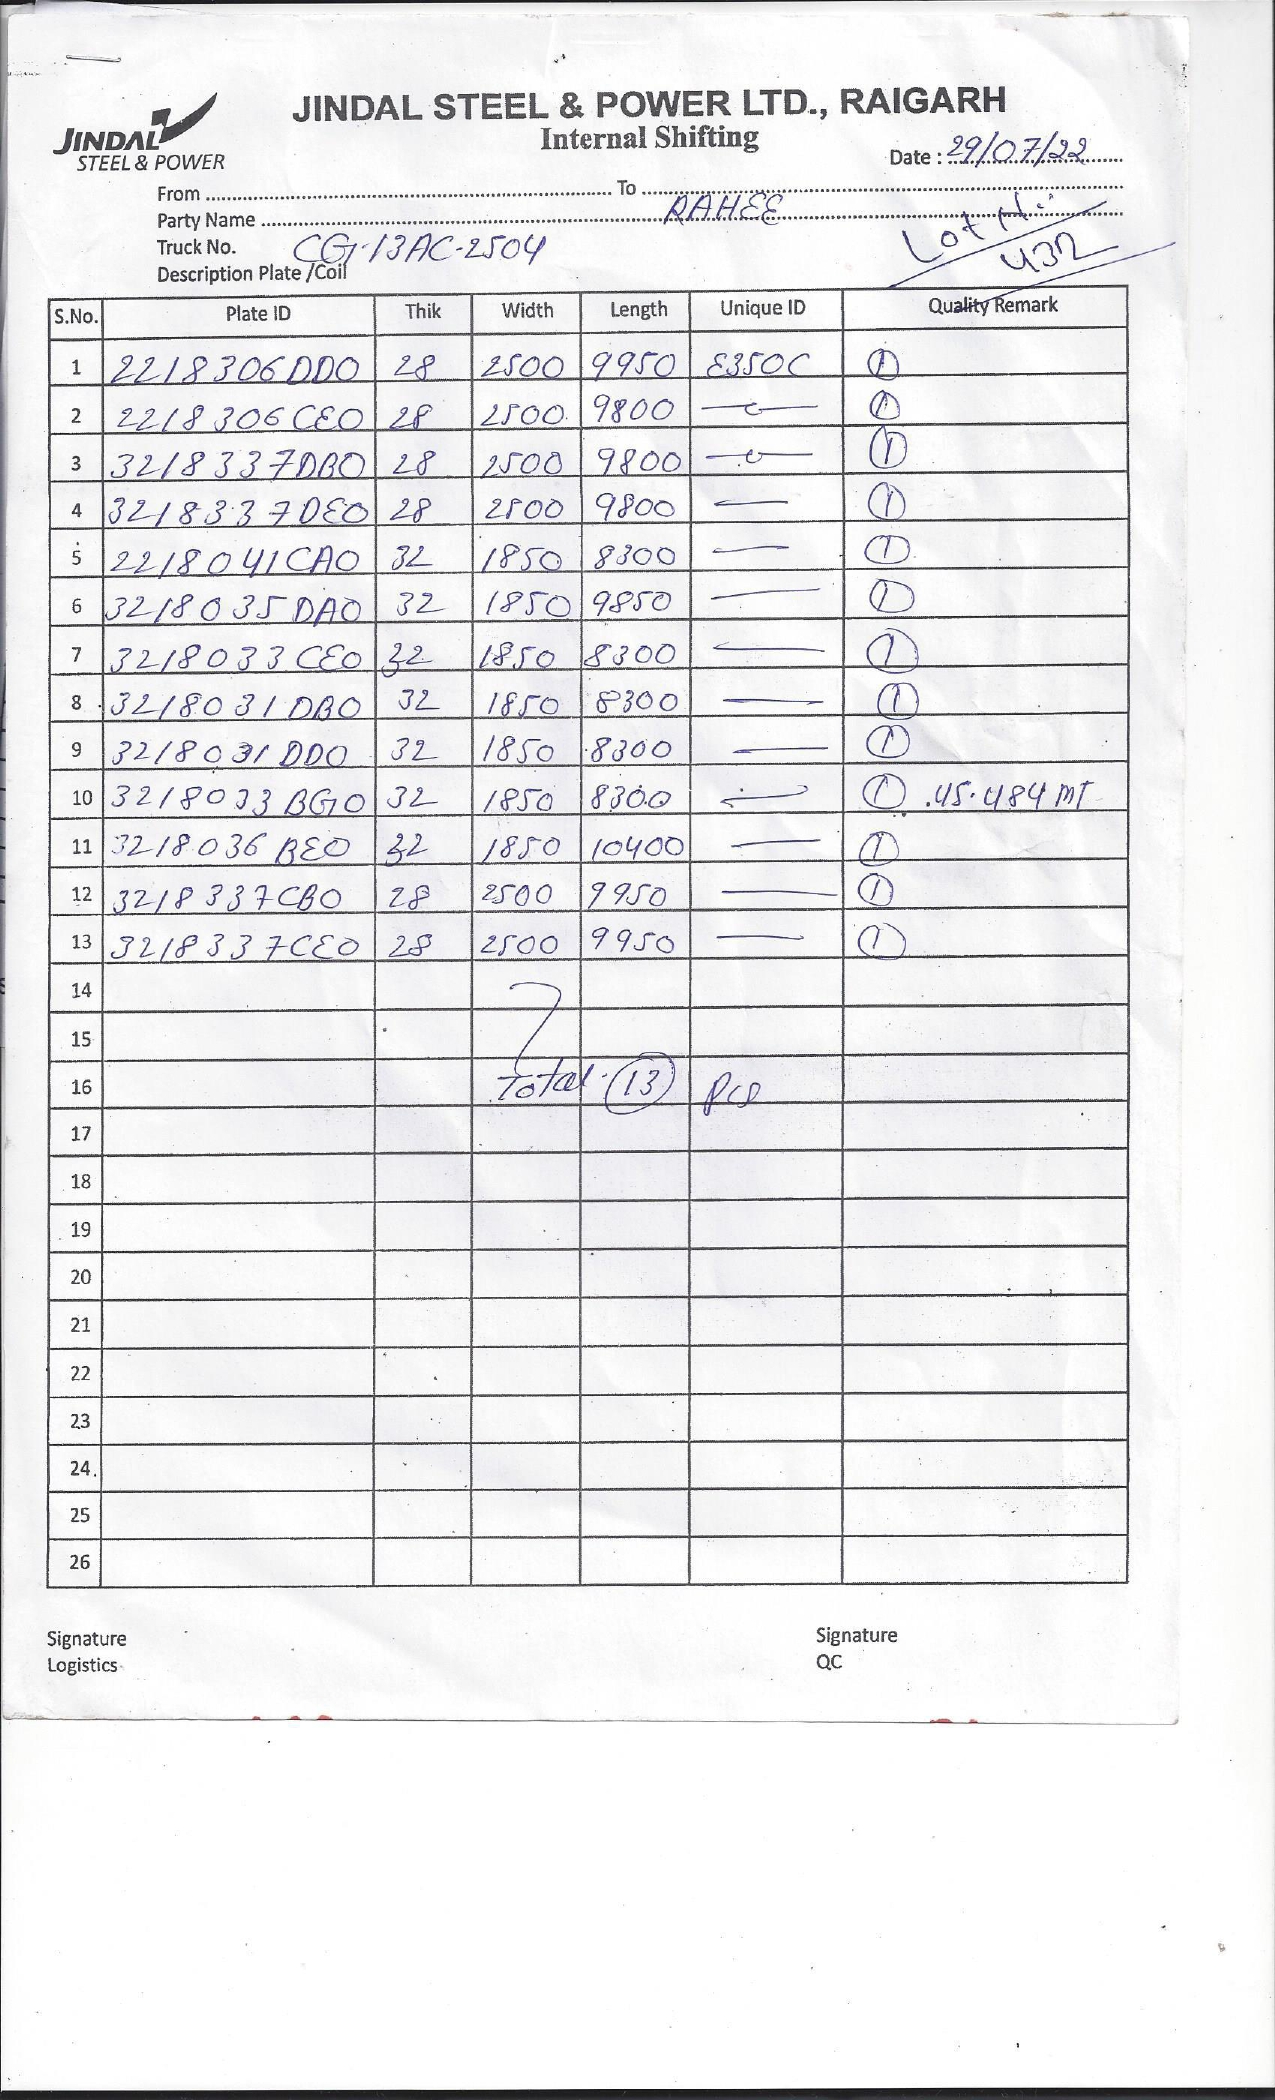 JINDAL STEEL & POWER LTD., RAIGARH
JINDAL
STEEL & POWER
Internal Shifting
Date : 29/07/22
From To
Party Name RAHEE
Lot No:
432
Truck No. CG-13AC-2504
Description Plate /Coil
S.No. Plate ID Thik Width Length Unique ID Quality Remark
1 2218306DDO 28 2500 9950 E350C 1
2 2218306CEO 28 2500 9800 1
3 3218337DBO 28 2500 9800 1
4 3218337DEO 28 2500 9800 1
5 2218041CAO 32 1850 8300 1
6 3218035DAO 32 1850 9850 1
7 3218033CEO 32 1850 8300 1
8 3218031DBO 32 1850 8300 1
9 3218031DDO 32 1850 8300 1
10 3218033BGO 32 1850 8300 1 45.484 MT
11 3218036BEO 32 1850 10400 1
12 3218337CBO 28 2500 9950 1
13 3218337CEO 28 2500 9950 1
14
15
16 Total 13 Pcs
17
18
19
20
21
22
23
24
25
26
Signature Signature
Logistics QC